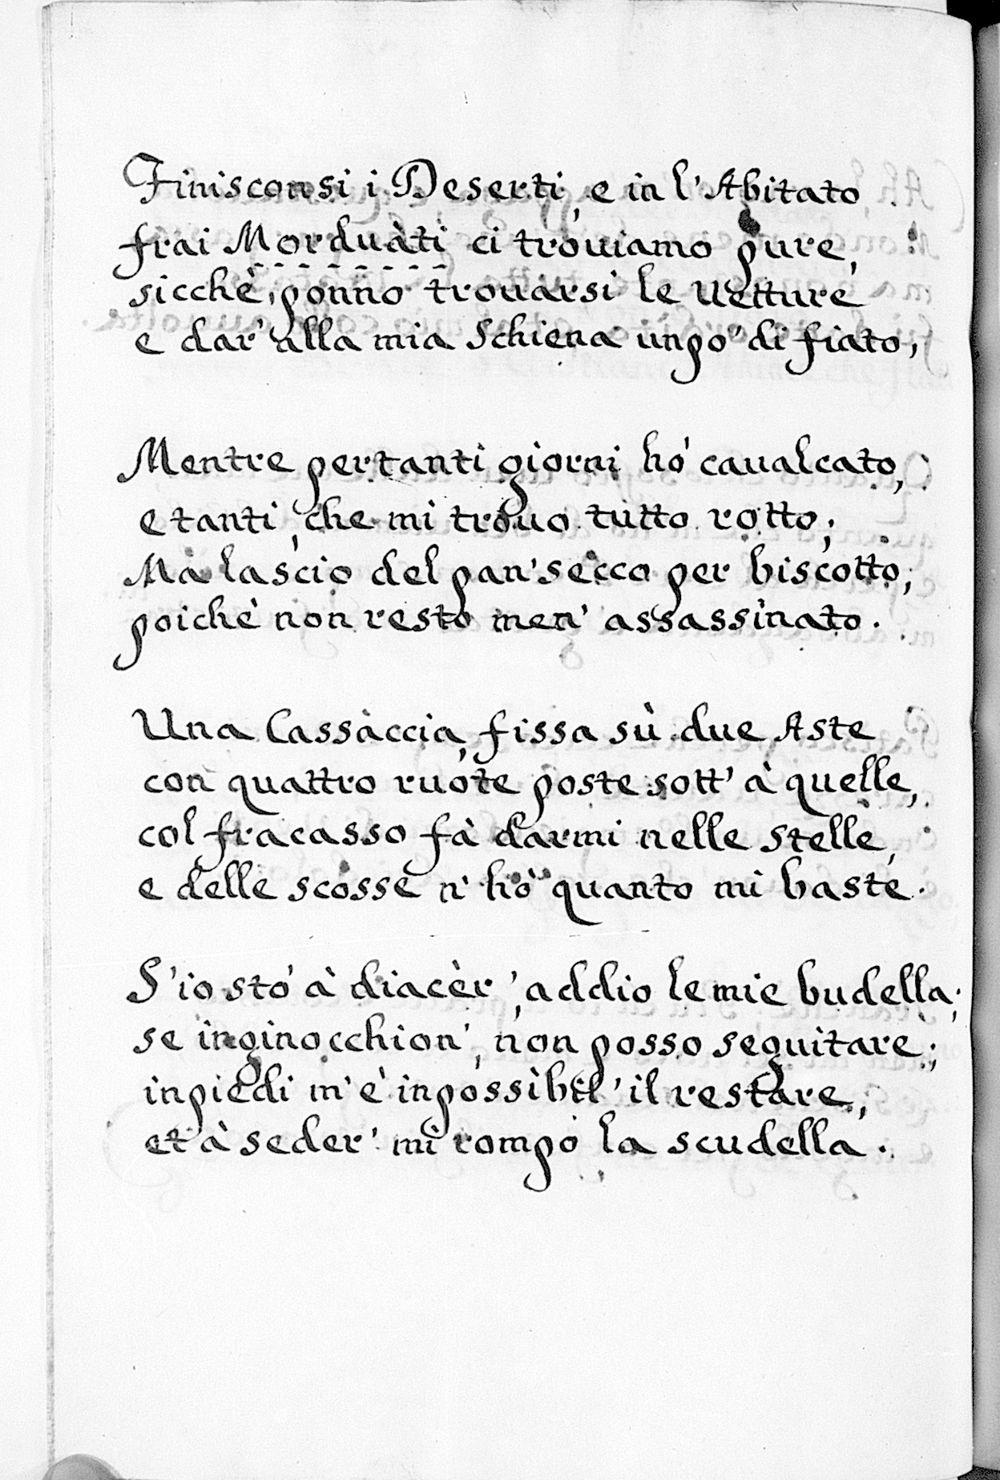 Finisconsi i Deserti, e in l'Abitato
frai Morduàti ci trouiamo pure,
sicchè, ponno trouarsi le uetture
e dar' alla mia schiena un po' di fiato,
Mentre per tanti giorni hò caualcato,
e tanti, che mi trouo tutto rotto;
Mà lascio del pan' secco per biscotto,
poichè non resto men' assassinato.
Una Cassàccia, fissa sù due Aste
con quattro ruote poste sott' à quelle,
col fracasso fà darmi nelle stelle,
e delle scosse n' hò quanto mi baste.
S'io stò à diacèr', addio le mie budella;
se inginocchion', non posso seguitare;
in piedi m' è inpossibil' il restare,
et à seder' mi rompo la scudella.